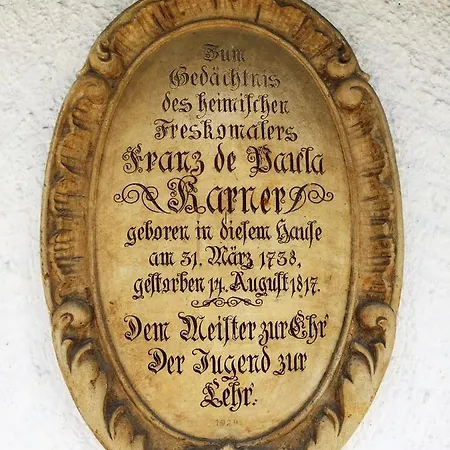 Zum
Gedächtnis
des heimischen
Freskomalers
Franz de Paula
Karner
geboren in diesem Hause
am 31. März 1738,
gestorben 14. August 1817.
Dem Meister zur Ehr
Der Jugend zur
Lehr.